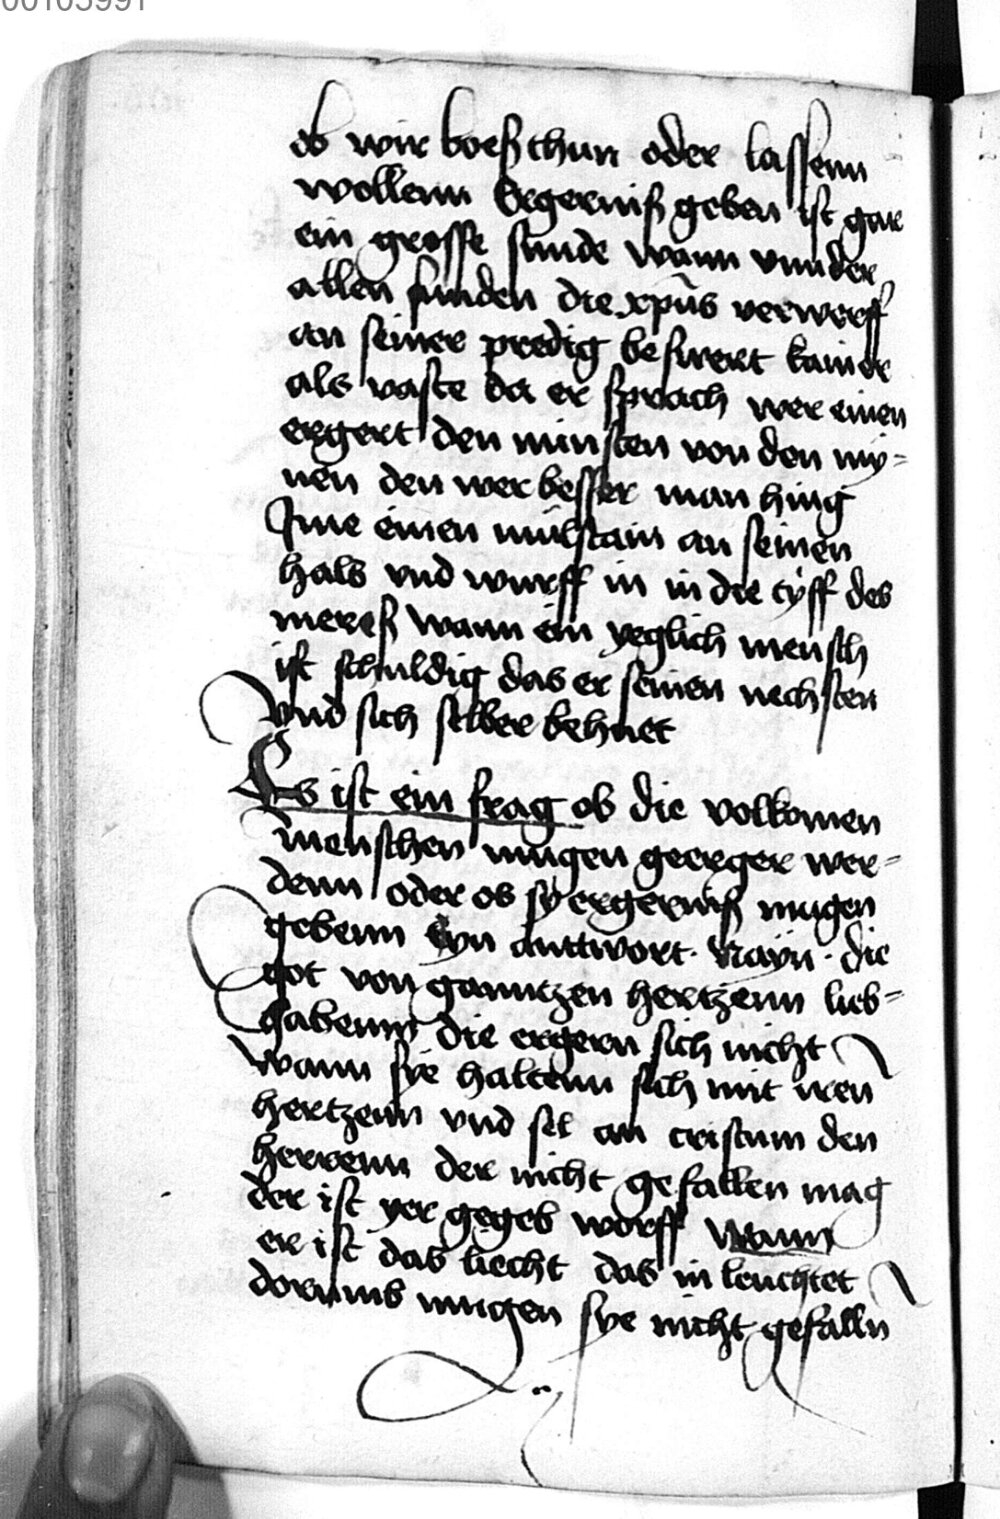 00103991
ob wir boeß thun oder lassenn
wollenn Ergerniß geben ist gar
ein grosse sunde wann vnnder
allen sunden die xpūs verwerff
an seiner predig beswert kainer
als vaste da er sprach wer einen
ergert den minsten von den my-
nen den wer besser man hing
Ime einen mülstain an seinen
hals vnd wurff in in die tÿff des
mereß wann ein yeglich mensch
ist schuldig das er seinen nechsten
vnd sich selber behuet
Es ist ein frag ob die volkomen
menschen mugen geerger wer-
denn oder ob sÿ ergerniß mugen
gebenn Eyn anttwort. Nayn. die
got von ganntzen hertzenn lieb-
habenn die ergern sich nicht
wann sye haltenn sich mit iren
hertzenn vnd sel an cristum den
herrenn der nicht gefallen mag
der ist yer gegeb worff wann
er ist das liecht das in leuchtet
dorumb mugen sye nicht gefalln